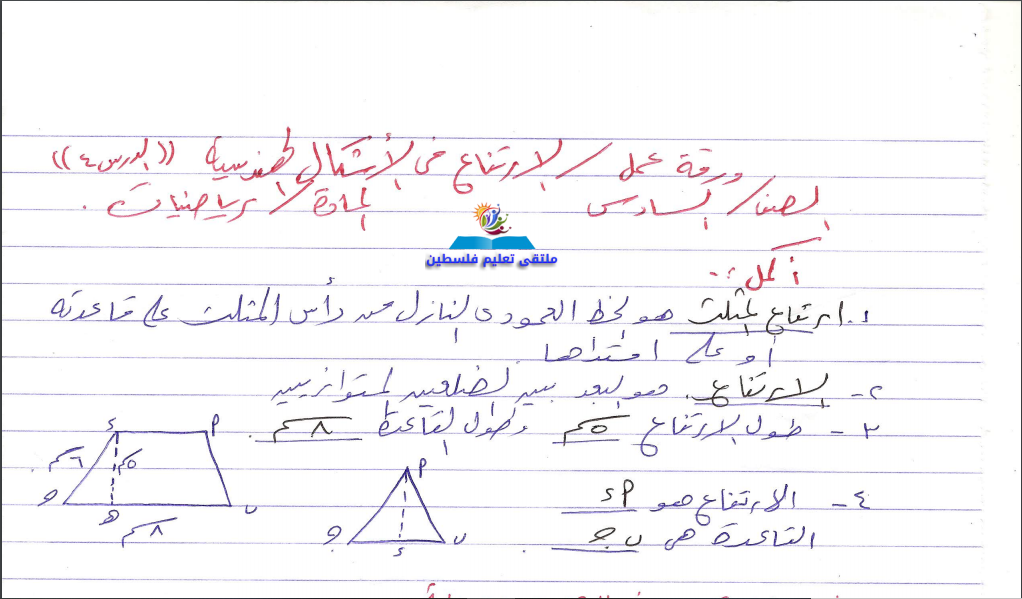 ورقة عمل / الارتفاع في الأشكال الهندسية ((الدرس ٤))
الصف / السادس المادة / رياضيات .
ملتقى تعليم فلسطين
أكمل :-
١- ارتفاع المثلث هو الخط العمودي النازل من رأس المثلث على قاعدته
أو على امتدادها .
٢- الارتفاع هو البعد بين الضلعين المتوازيين
٣- طول الارتفاع ٥سم وطول القاعدة ٨سم .
٤- الارتفاع هو أ د
القاعدة هي ب جـ .
د أ
٦سم ٥سم
جـ هـ ب
٨سم
أ
جـ د ب